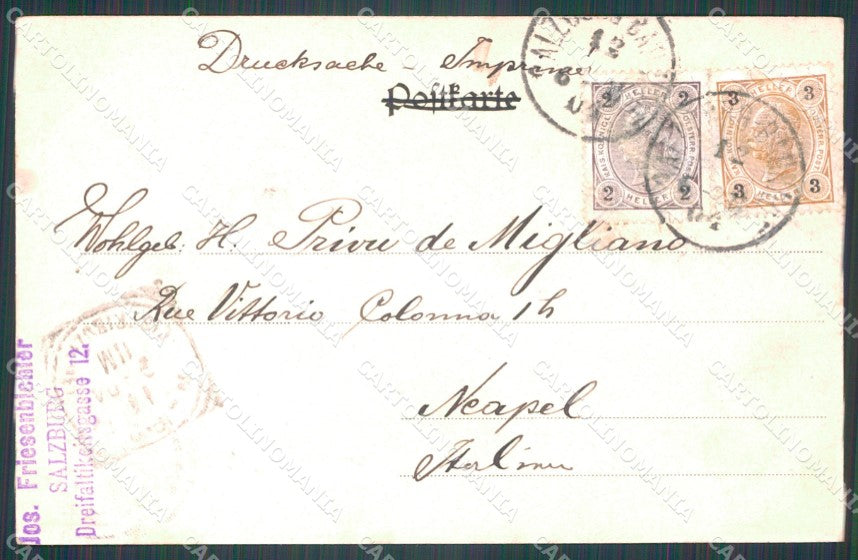 Drucksache - Imprimé
Postkarte
2 HELLER 2
2 HELLER 2
3 3
3 3
Wohlgeb. H. Privu de Migliano
Rue Vittorio Colonna 1h
Neapel
Italien
Jos. Friesenbichler
SALZBURG
Dreifaltikeitsgasse 12.
CARTOLINOMANIA